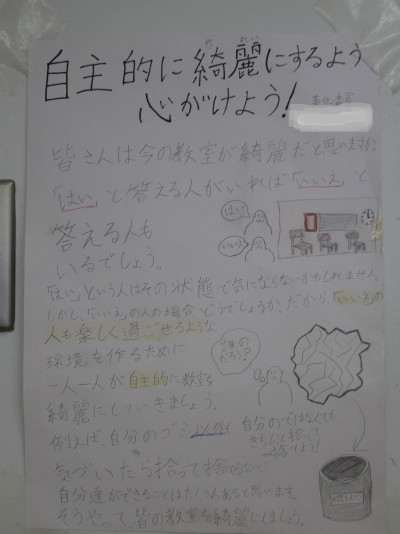 自主的に綺麗にするよう
きれい
心がけよう!
美化委員
皆さんは今の教室が綺麗だと思いますか?
「はい」と答える人がいれば「いいえ」と
答える人も
いるでしょう。
はい
いいえ
「はい」という人はその状態で気にならないかもしれません。
しかし、「いいえ」の人の場合どうでしょうか。だから、「いいえ」の
人も楽しく過ごせるような
環境を作るために
一人一人が自主的に教室を
綺麗にしていきましょう。
誰の
だろう?
例えば、自分のゴミ
自分のではなくても
きちんと拾って
捨てよう!
気づいたら拾って捨てるなど
自分達ができることはたくさんあると思います。
そうやって、皆の教室を綺麗にしましょう。